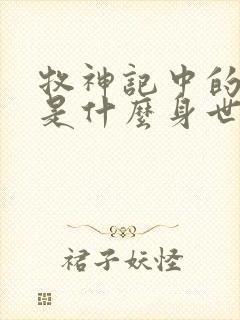 牧神记中的
是什麽身世
裙子妖怪